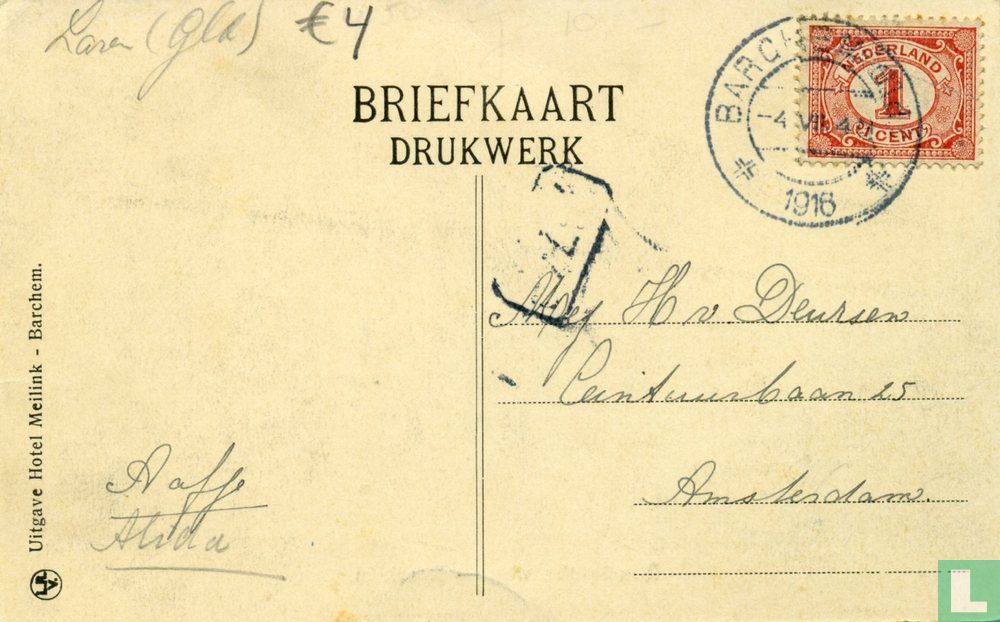 Laren (Gld) € 4
BRIEFKAART
DRUKWERK
BARCHEM
-4 VII 4
1916
NEDERLAND
1
1 CENT
Mej H v Deursen
Ceintuurbaan 25
Amsterdam.
Aafje
Alida
Uitgave Hotel Meilink - Barchem.
L.R.
V.
L